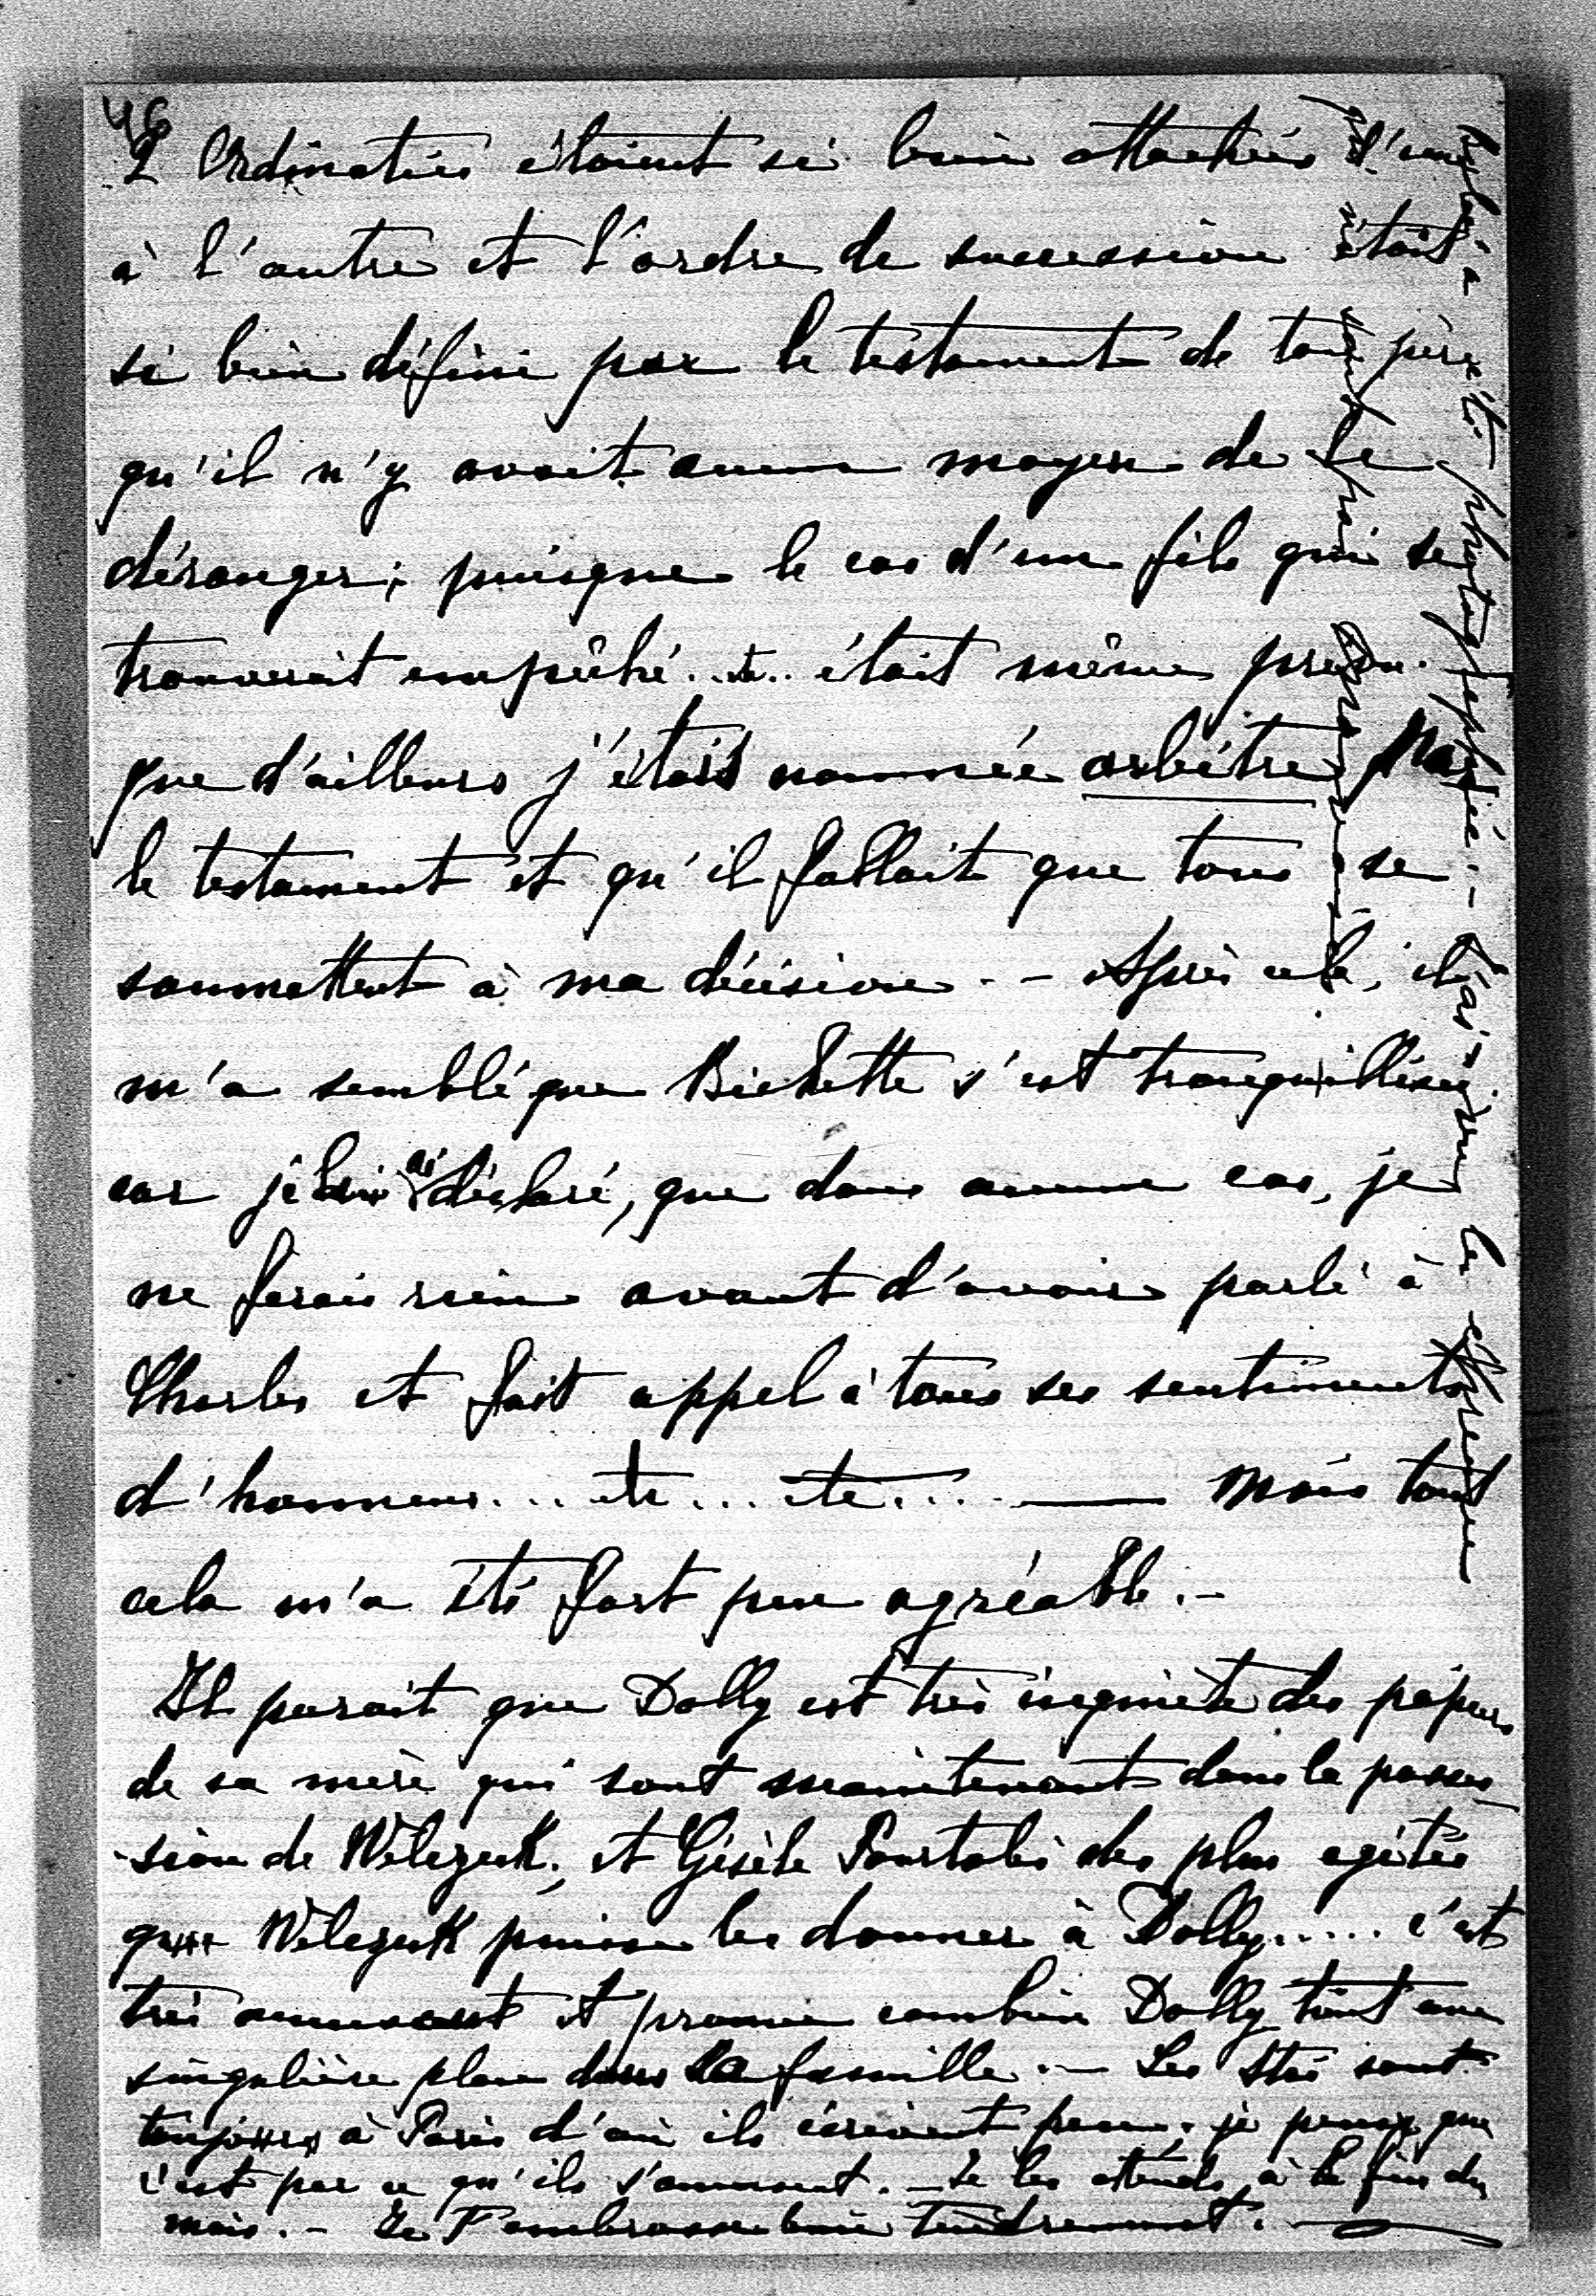 46
2 Ordinaties étaient si bien attachées l'une
à l'autre et l'ordre de succession était
si bien défini par le testament de ton père
qu'il n'y avait aucun moyen de le
déranger; puisque le cas d'un fils qui se
trouverait empêché.. etc.. était même prévu.
que d'ailleurs j'étais nommée arbitre par
le testament et qu'il fallait que tous se
soumettent à ma décision. - Après cela, il
m'a semblé que Bichette s'est tranquillisée
car je lui ai déclaré, que dans aucun cas, je
ne ferais rien avant d'avoir parlé à
Charles et fait appel à tous ses sentiments
d'honneur... etc... etc.... — Mais tout
cela m'a été fort peu agréable. -
Il parait que Dolly est très inquiète des papiers
de sa mère qui sont maintenant dans la posses-
-sion de Wilczek, et Gisèle Pourtalès des plus agitée
que Wilczek puisse les donner à Dolly..... c'est
très amusant et prouve combien Dolly tient une
singulière place dans la famille. - Les Stas sont
toujours à Paris d'où ils écrivent peu; je pense que
c'est par ce qu'ils s'amusent. - Je les attends à la fin du
mois. - Je T'embrasse bien tendrement. —
a été photographiée. - J'ai vu les épreuves